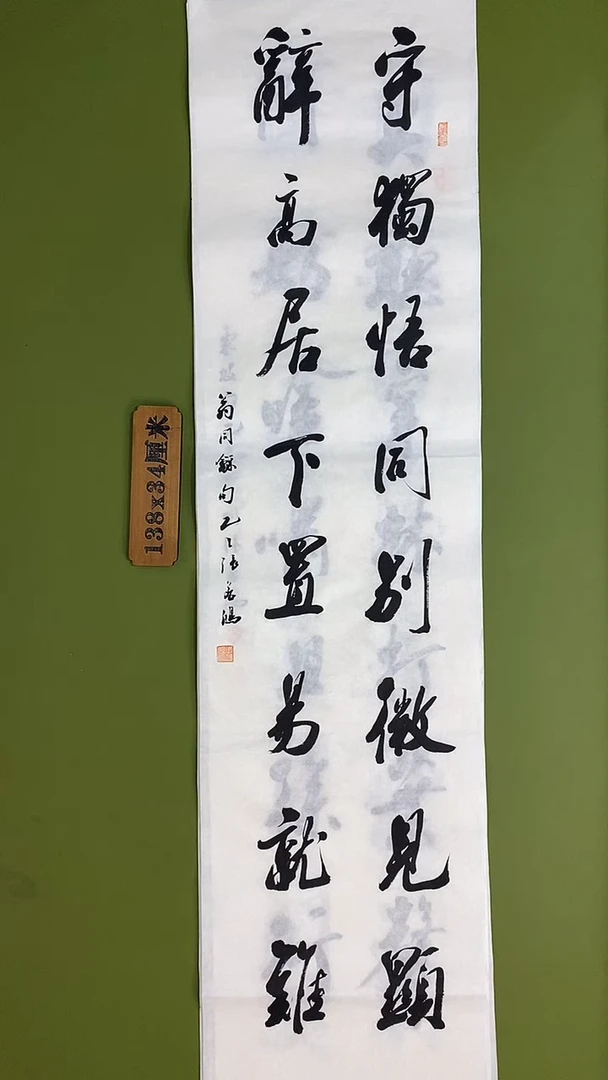 守獨悟同别微見顯
辭高居下置易就難
翁同龢句乙巳張
138x34厘米